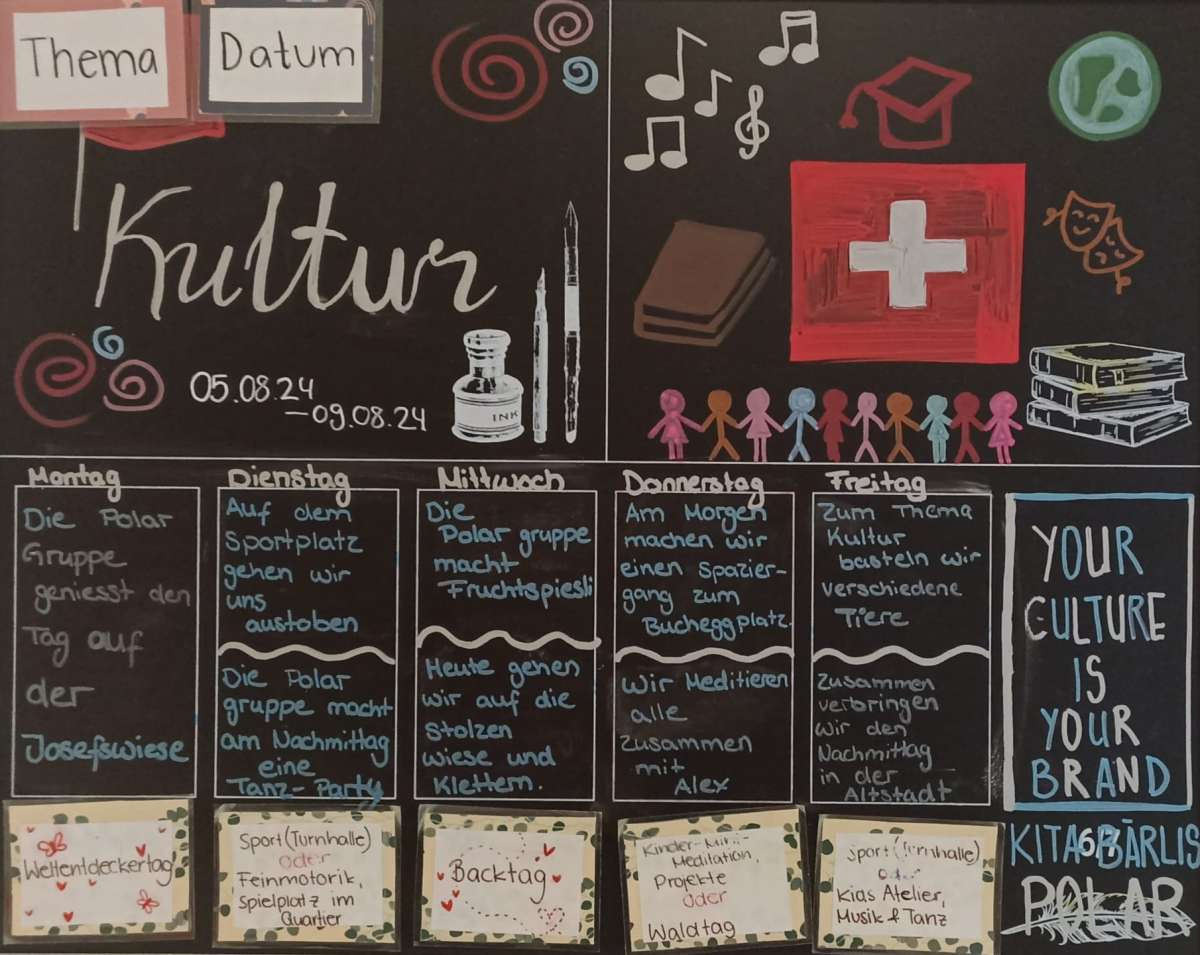 Thema
Datum
Kultur
05.08.24
—09.08.24
INK
Montag
Die Polar
Gruppe
geniesst den
Tag auf
der
Josefswiese
Dienstag
Auf dem
Sportplatz
gehen wir
uns
austoben
Die Polar
gruppe macht
am Nachmittag
eine
Tanz-Party
Mittwoch
Die
Polar gruppe
macht
Fruchtspiesli
Heute gehen
wir auf die
Stolzen
wiese und
Klettern.
Donnerstag
Am Morgen
machen wir
einen Spazier-
gang zum
Bucheggplatz.
Wir Meditieren
alle
zusammen
mit
Alex
Freitag
Zum Thema
Kultur
basteln wir
verschiedene
Tiere
Zusammen
verbringen
wir den
Nachmittag
in der
Altstadt
YOUR
CULTURE
IS
YOUR
BRAND
Weltentdeckertag
Sport (Turnhalle)
oder
Feinmotorik,
Spielplatz im
Quartier
Backtag
Meditation,
Projekte
oder
Waldtag
Sport (Turnhalle)
oder
Kias Atelier,
Musik & Tanz
KITA BÄRLIS
POLAR